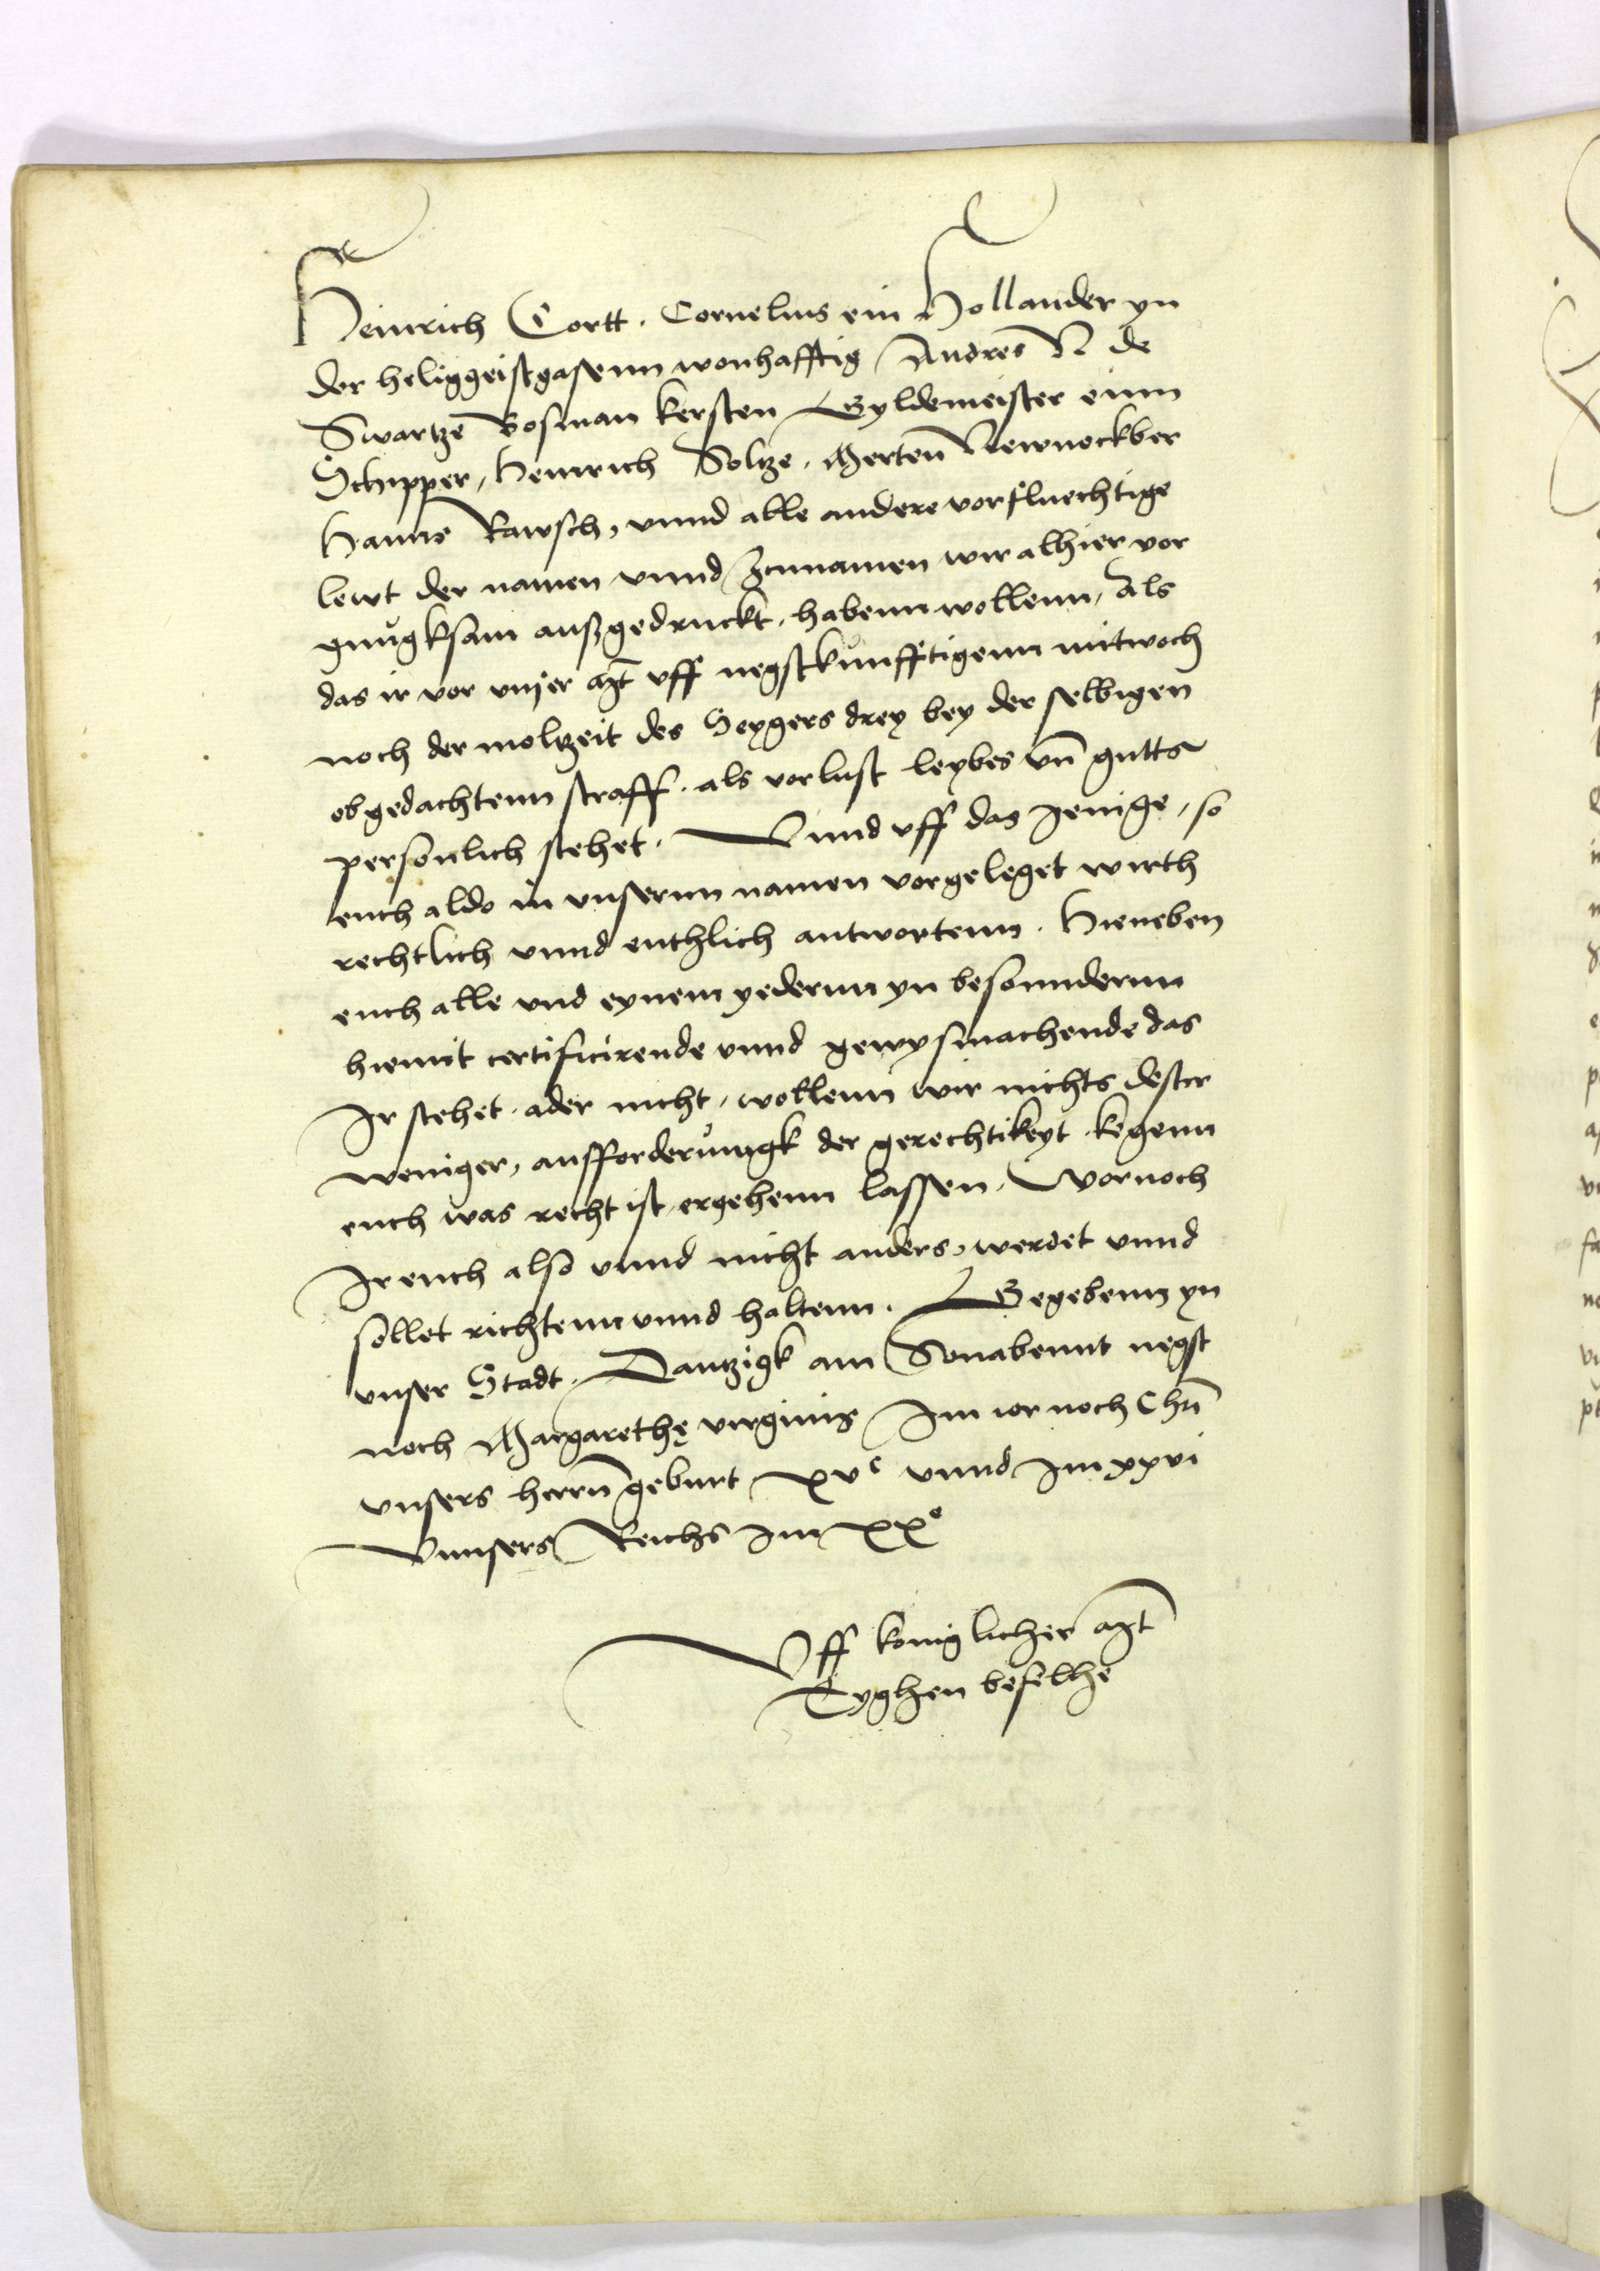 Heinrich Cortt. Cornelius ein Hollander yn
der heliggeistgasenn wonhafftig Andres N de
Swartze Bosman kersten Gyldemeister einn
Schipper, Heinrich Soltze. Merten
Hanns Rawsch, vnnd alle andere vorfluechtige
lewt der namen vnnd Zcunamen wir alhier vor
gnugksam außgedruckt. habenn wollenn, Als
das ir vor vnser mt vff negstkunfftigenn mitwoch
noch der moltzeit des Seygers drey bey der selbigen
obgedachtenn straff. als vorlust leybes vn gutts
personlich stehet. Vnnd vff das Jenige, so
euch aldo in vnsernn namen vorgeleget wirth
rechtlich vnnd enthlich antwortenn. Hieneben
euch alle vnd eynem yedernn yn besonndernn
hiemit certificirende vnnd gewysmachende das
Ir stehet. ader nicht, wollenn wir nichts dester
weniger, ausfforderungk der gerechtikeyt. kegenn
euch was recht ist, ergehenn lassen, Wornoch
Ir euch also vnnd nicht anders, werdet vnnd
sollet richtenn vnnd haltenn. Gegebenn yn
vnser Stadt. Dantzigk am Sonabennt negst
noch Margarethę virginis Im ior noch Chri
vnsers herrn geburt xvc vnnd Im xxvi
Vnnsers Reichs Im xxe
Vff koniglicher mt
Eyghen befelhe